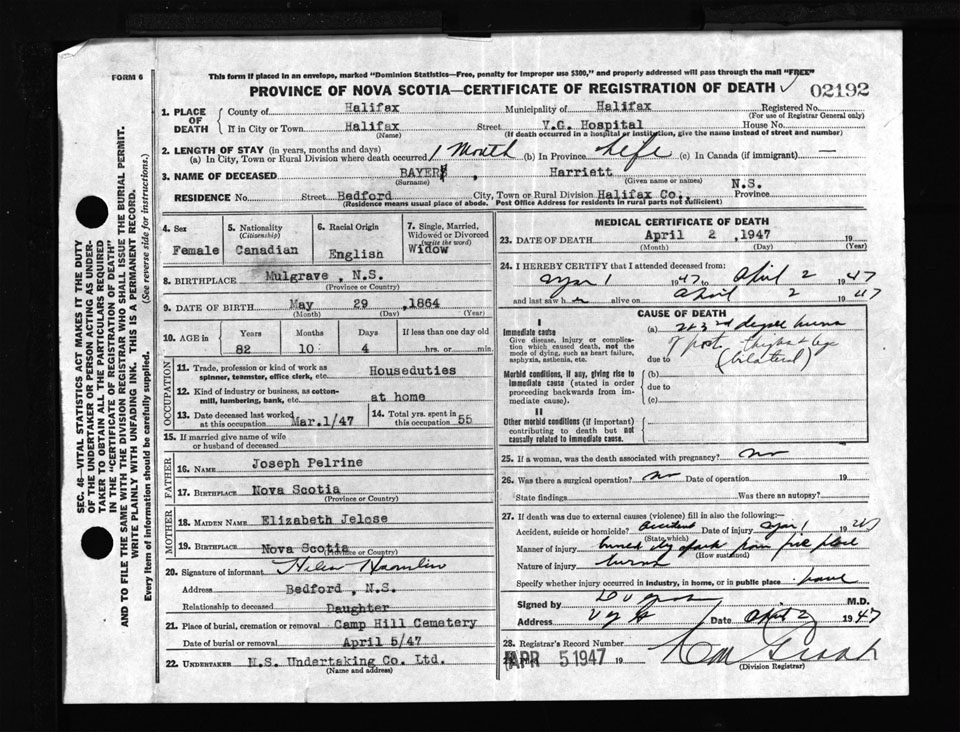 FORM 6
This form if placed in an envelope, marked "Dominion Statistics—Free, penalty for improper use $300," and properly addressed will pass through the mail "FREE"
PROVINCE OF NOVA SCOTIA—CERTIFICATE OF REGISTRATION OF DEATH
02192
1. PLACE OF DEATH
County of Halifax Municipality of Halifax Registered No.
(For use of Registrar General only)
If in City or Town Halifax Street V.G. Hospital House No.
(Name) (If death occurred in a hospital or institution, give the name instead of street and number)
2. LENGTH OF STAY (in years, months and days)
(a) In City, Town or Rural Division where death occurred 1 Month (b) In Province Life (c) In Canada (if immigrant) —
3. NAME OF DECEASED BAYER , Harriett
(Surname) (Given name or names)
RESIDENCE No. Street Bedford City, Town or Rural Division Halifax Co. Province N.S.
(Residence means usual place of abode. Post Office Address for residents in rural parts not sufficient)
4. Sex Female
5. Nationality (Citizenship) Canadian
6. Racial Origin English
7. Single, Married, Widowed or Divorced (write the word) Widow
8. BIRTHPLACE Mulgrave , N.S.
(Province or Country)
9. DATE OF BIRTH May 29 ,1864
(Month) (Day) (Year)
10. AGE in Years Months Days If less than one day old
82 10 4 hrs. or min.
OCCUPATION
11. Trade, profession or kind of work as spinner, teamster, office clerk, etc. Houseduties
12. Kind of industry or business, as cotton-mill, lumbering, bank, etc. at home
13. Date deceased last worked at this occupation Mar.1/47
14. Total yrs. spent in this occupation 55
15. If married give name of wife or husband of deceased
FATHER
16. NAME Joseph Pelrine
17. BIRTHPLACE Nova Scotia
(Province or Country)
MOTHER
18. MAIDEN NAME Elizabeth Jelose
19. BIRTHPLACE Nova Scotia
(Province or Country)
20. Signature of informant Helen Hamlin
Address Bedford , N.S.
Relationship to deceased Daughter
21. Place of burial, cremation or removal Camp Hill Cemetery
Date of burial or removal April 5/47
22. UNDERTAKER N.S. Undertaking Co. Ltd.
(Name and address)
MEDICAL CERTIFICATE OF DEATH
23. DATE OF DEATH April 2 ,1947 19
(Month) (Day) (Year)
24. I HEREBY CERTIFY that I attended deceased from:
1 1947 to April 2 1947
and last saw h alive on April 2 1947
CAUSE OF DEATH
I
Immediate cause
Give disease, injury or complication which caused death, not the mode of dying, such as heart failure, asphyxia, asthenia, etc.
(a) 2 & 3rd degree burns
due to (bilateral)
Morbid conditions, if any, giving rise to immediate cause (stated in order proceeding backwards from immediate cause).
(b)
due to
(c)
II
Other morbid conditions (if important) contributing to death but not causally related to immediate cause.
25. If a woman, was the death associated with pregnancy? no
26. Was there a surgical operation? no Date of operation 19
State findings Was there an autopsy?
27. If death was due to external causes (violence) fill in also the following:—
Accident, suicide or homicide? Accident Date of injury 1 1947
(State which)
Manner of injury burned by spark from fire place
(How sustained)
Nature of injury burns
Specify whether injury occurred in industry, in home, or in public place home
Signed by M.D.
Address V G Date April 2 1947
28. Registrar's Record Number
APR 5 1947 19
(Division Registrar)
SEC. 46—VITAL STATISTICS ACT MAKES IT THE DUTY
OF THE UNDERTAKER OR PERSON ACTING AS UNDER-
TAKER TO OBTAIN ALL THE PARTICULARS REQUIRED
IN THE "CERTIFICATE OF REGISTRATION OF DEATH"
AND TO FILE THE SAME WITH THE DIVISION REGISTRAR WHO SHALL ISSUE THE BURIAL PERMIT.
WRITE PLAINLY WITH UNFADING INK. THIS IS A PERMANENT RECORD.
Every item of information should be carefully supplied. (See reverse side for instructions.)